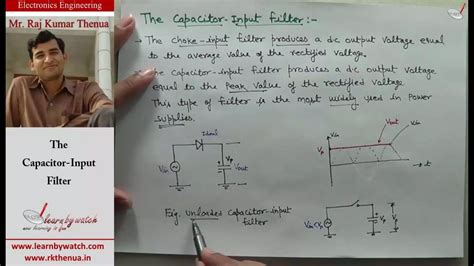 Electronics Engineering
Mr. Raj Kumar Thenua
The
Capacitor-Input
Filter
learnbywatch
www.learnbywatch.com
www.rkthenua.in
The Capacitor-Input filter:-
→ The choke-input filter produces a dc output voltage equal
to the average value of the rectified voltage.
The Capacitor-input filter produces a dc output voltage
equal to the Peak value of the rectified voltage.
This type of filter is the most widely used in Power
supplies.
Ideal
Vin
Vp
Vout
Vin
Vout
Vin
Vp
t
Fig. Unloaded capacitor-input
filter
Vp